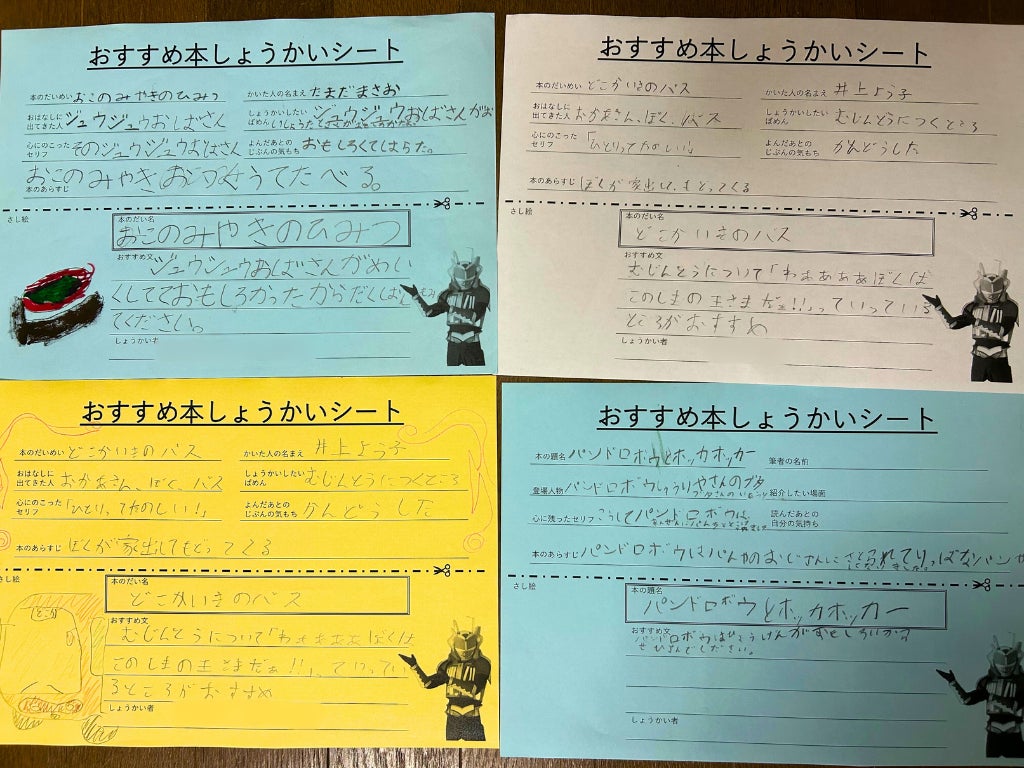 おすすめ本しょうかいシート
本のだいめい おこのみやきのひみつ かいた人の名まえ たまだまさお
おはなしに出てきた人 ジュウジュウおばさん しょうかいしたいばめん ジュウジュウおばさんがお
心にのこったセリフ そのジュウジュウおばさん よんだあとのじぶんの気もち おもしろくてしはらた。
おこのみやき
本のあらすじ
さし絵
本のだい名
おこのみやきのひみつ
おすすめ文 ジュウジュウおばさんがめい
くしてておもしろかったからだ
てください。
しょうかい者
おすすめ本しょうかいシート
本のだいめい どこかいきのバス かいた人の名まえ 井上よう子
おはなしに出てきた人 おかあさん、ぼく、バス しょうかいしたいばめん むじんとうにつくところ
心にのこったセリフ 「ひとりってたのしい!」 よんだあとのじぶんの気もち かんどうした
本のあらすじ ぼくが家出して、もどってくる
さし絵
本のだい名
どこかいきのバス
おすすめ文
むじんとうについて「わぁぁぁぁぼくは
このしまの王さまだぁ!!」っていっている
ところがおすすめ
しょうかい者
おすすめ本しょうかいシート
本のだいめい どこかいきのバス かいた人の名まえ 井上よう子
おはなしに出てきた人 おかあさん、ぼく、バス しょうかいしたいばめん むじんとうにつくところ
心にのこったセリフ 「ひとりってたのしい!」 よんだあとのじぶんの気もち かんどうした
本のあらすじ ぼくが家出してもどってくる
さし絵
本のだい名
どこかいきのバス
どこか
おすすめ文
むじんとうについて「わぁぁぁぁぼくは
このしまの王さまだぁ!!」っていってい
るところがおすすめ
しょうかい者
おすすめ本しょうかいシート
本の題名 パンドロボウとホッカホッカー 筆者の名前
登場人物 パンドロボウ 紹介したい場面
心に残ったセリフ こうしてパンドロボウは 読んだあとの自分の気持ち
本のあらすじ パンドロボウはパんやのおじさんに
さし絵
本の題名
パンドロボウとホッカホッカー
おすすめ文
パンドロボウ がおもしろいから
ぜひよんでください。
しょうかい者